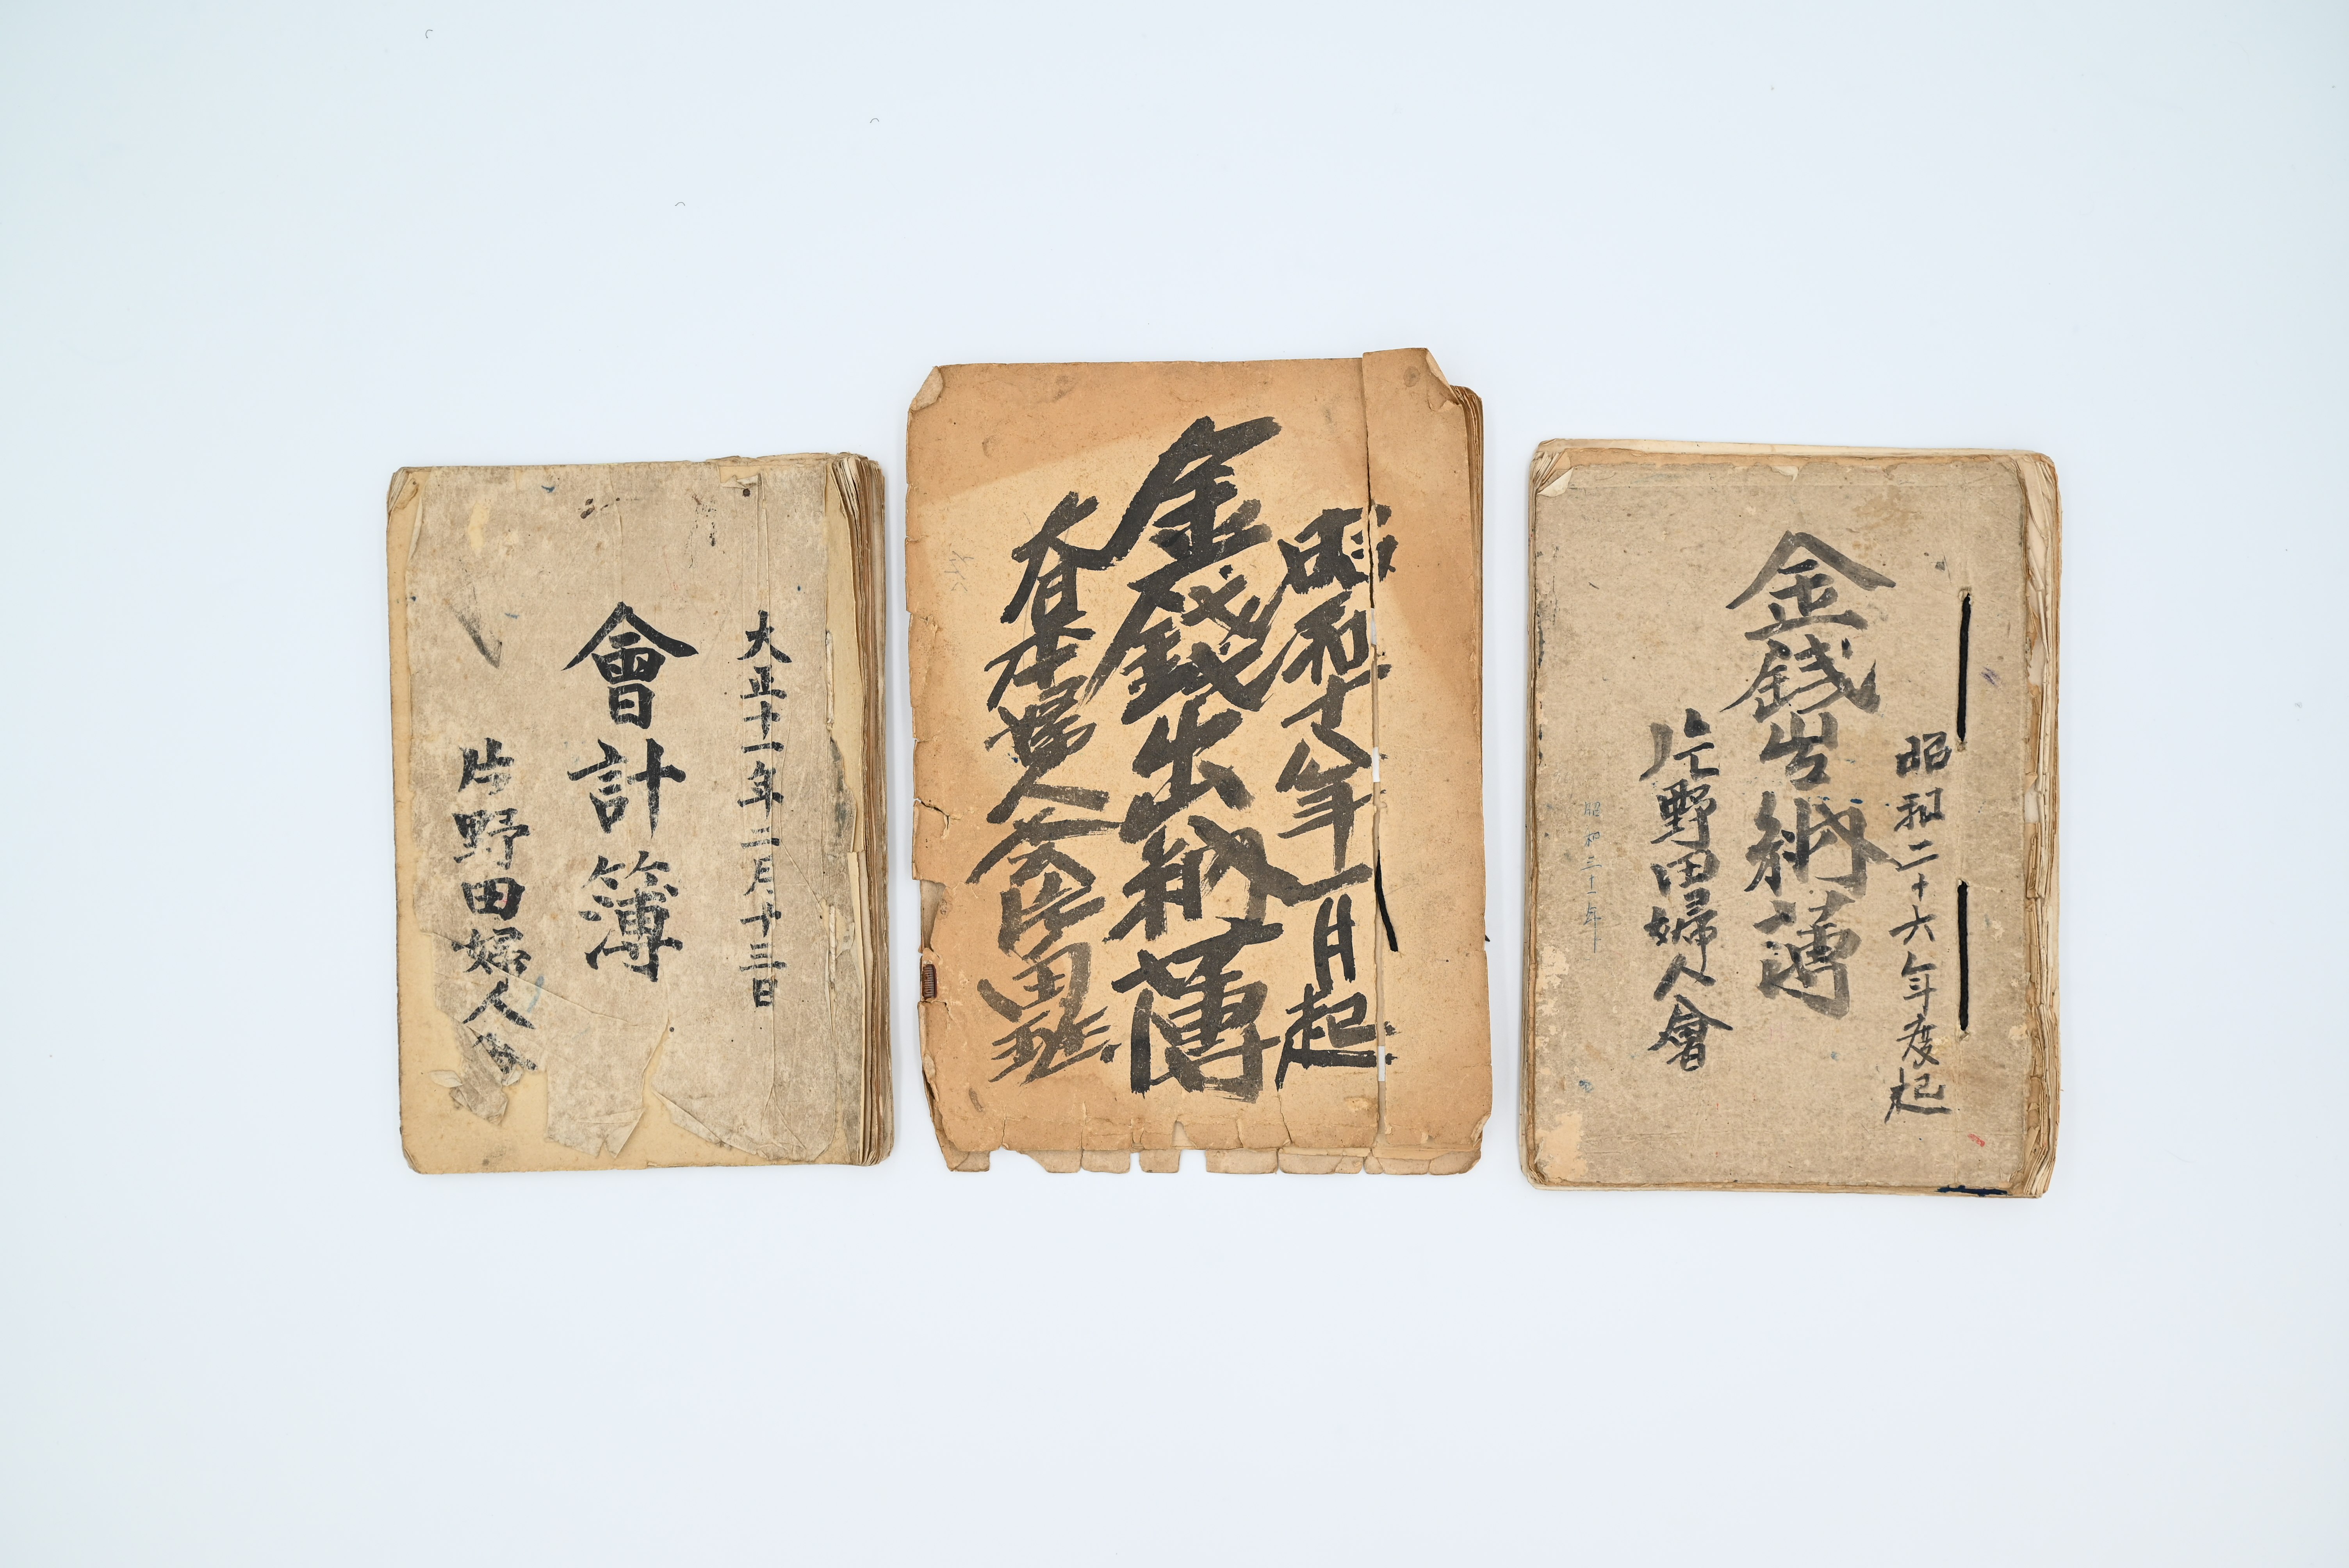 大正十一年二月十三日
會計簿
片野田婦人会
昭和十八年一月起
金錢出納薄
大日本婦人会片田班
昭和二十六年度起
金銭出納薄
片野田婦人會
昭和三十一年